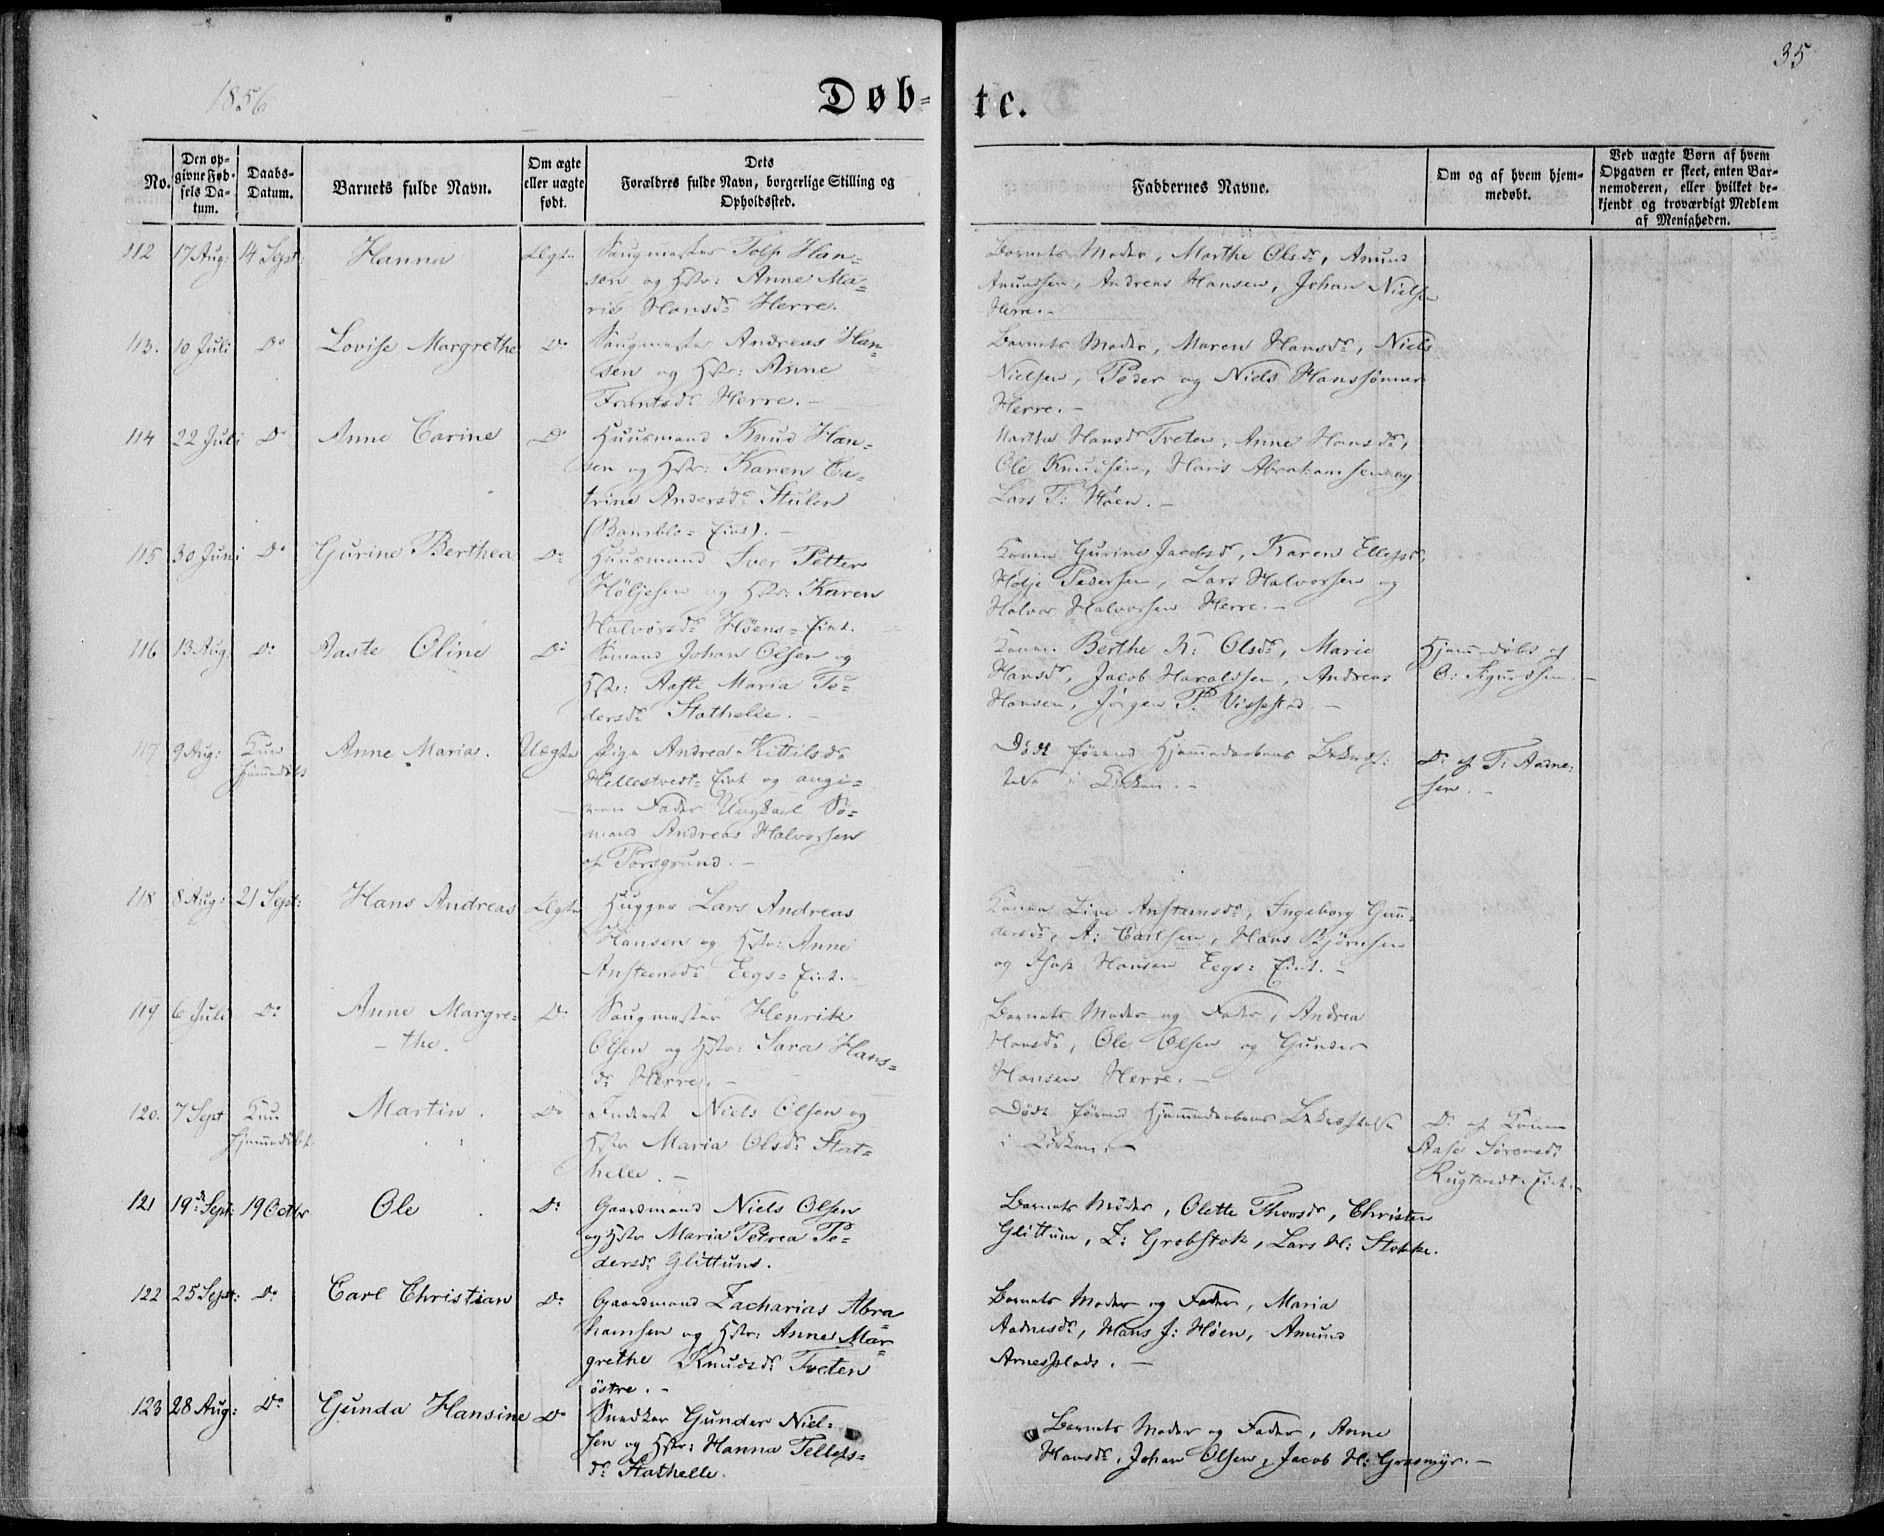 1856
35
Døb-
te.
No.
Den op-
givne Fød-
sels Da-
tum.
Daabs-
Datum.
Barnets fulde Navn.
Om ægte
eller uægte
født.
Dets
Forældres fulde Navn, borgerlige Stilling og
Opholdssted.
Faddernes Navne.
Om og af hvem hjem-
medøbt.
Ved uægte Børn af hvem
Opgaven er skeet, enten Bar-
nemoderen, eller hvilket be-
kjendt og troværdigt Medlem
af Menigheden.
112 17 Aug: 14 Sept: Hanna Ægte Saugmester Tolf Han-
sen og Hstr: Anne Ma-
rie Hansdr Herre.
Barnets Moder, Marthe Olsdr, Amund
Amundsen, Andreas Hansen, Johan Nielsen
Herre.-
113. 10 Juli Do Lovise Margrethe Do Saugmester Andreas Han-
sen og Hstr: Anne
Frantsdr Herre.-
Barnets Moder, Maren Hansdr, Niels
Nielsen, Peder og Niels Hanssønner
Herre.-
114 22 Juli Do Anne Carine Do Huusmand Knud Han-
sen og Hstr: Karen Ca-
trine Andersdr Stulen
(Bamble- Eiet).-
Marthe Hansdr Tveten, Anne Hansdr,
Ole Knudsen, Hans Abrahamsen og
Lars T: Høen.-
115 30 Juni Do Gurine Berthea Do Huusmand Iver Petter
Høljesen og Hstr: Karen
Halvorsdr Høens- Eiet.
Konen Gurine Jacobsdr, Karen Ellefsdr,
Hølje Pedersen, Lars Halvorsen og
Halvor Halvorsen Herre.-
116 13 Aug: Do Aaste Oline Do Sømand Johan Olsen og
Hstr: Aaste Maria Pe-
dersdr Stathelle.-
Konen Berthe K: Olsdr, Marie
Hansdr, Jacob Haraldsen, Andreas
Hansen, Jørgen P. Vissestad.-
Hjemmedøbt af
O: Sigurdsen.-
117 9 Aug: Kun
hjemmedøbt Anne Maria. Uægte Pige Andrea Kittilsdr
Hellestvedt- Eiet og angi-
ven Fader Ungkarl Sø-
mand Andreas Halvorsen
af Porsgrund.-
Død førend Hjemmedaabens Bekræf-
telse i Kirken.-
Do af T: Aadne-
sen.-
118 8 Aug: 21 Sept: Hans Andreas Ægte Hugger Lars Andreas
Hansen og Hstr: Anne
Anstensdr Eegs- Eiet.
Konen Live Anstensdr, Ingeborg Gun-
dersdr, A: Carlsen, Hans Bjørnsen
og Isak Hansen Eegs- Eiet.-
119 6 Juli Do Anne Margre-
-the. Do Saugmester Henrik
Olsen og Hstr: Sara Hans-
dr Herre.-
Barnets Moder og Fader, Andrea
Hansdr, Ole Olsen og Gunder
Hansen Herre.-
120. 7 Sept Kun
hjemmedøbt Martin. Do Inderst Niels Olsen og
Hstr Maria Olsdr Stat-
helle.-
Død førend Hjemmedaabens Bekræftelse
i Kirken.-
Do af Konen
Aase Sørensdr
Rugtvedt- Eiet.-
121 19de Sept: 19 Octbr Ole Do Gaardmand Niels Olsen
og Hstr Maria Petrea Pe-
dersdr Glittums.
Barnets Moder, Olette Thorsdr, Christen
Glittum, Z: Grobstok, Lars H: Stokke.
122 25 Sept: Do Carl Christian Do Gaardmand Zacharias Abra-
hamsen og Hstr: Anne Mar-
grethe Knudsdr Tveten
østre.-
Barnets Moder og Fader, Maria
Aadnesdr, Hans J: Høen, Amund
Arnesplads.-
123 28 Aug: Do Gunda Hansine Do Snedker Gunder Niel-
sen og Hstr: Hanna Tellefs-
dr Stathelle.
Barnets Moder og Fader, Anne
Hansdr, Johan Olsen, Jacob H: Grasmyr.-